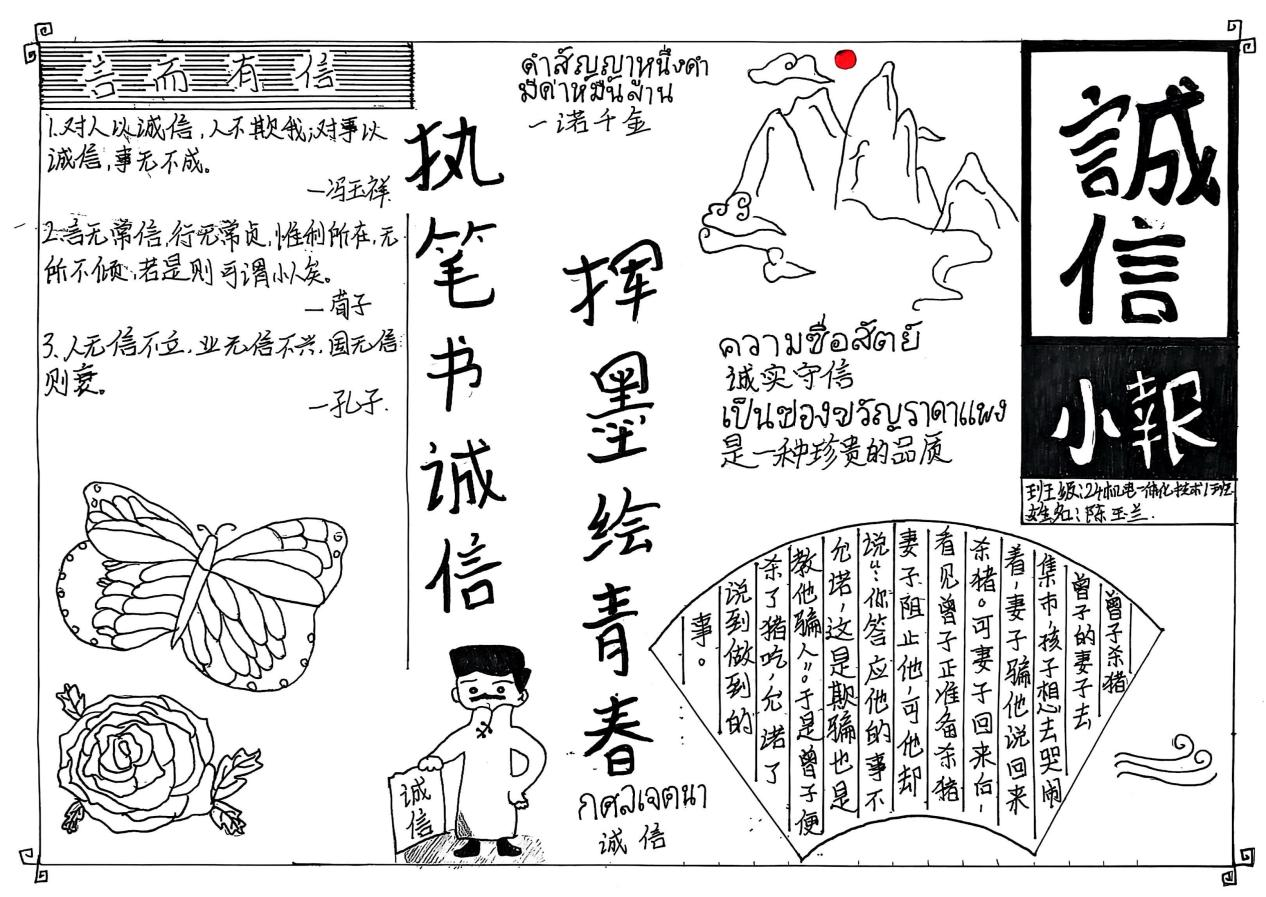 言而有信
1.对人以诚信,人不欺我;对事以
诚信,事无不成。
—冯玉祥
2.言无常信,行无常贞,惟利所在,无
所不倾,若是则可谓小人矣。
—荀子
3、人无信不立,业无信不兴,国无信
则衰。
—孔子.
执笔书诚信
挥墨绘青春
คำสัญญาหนึ่งคำ
มีค่าหมื่นล้าน
一诺千金
ความซื่อสัตย์
诚实守信
เป็นของขวัญราคาแพง
是一种珍贵的品质
誠信
小報
班级:24机电一体化技术1班
姓名:陈玉兰.
曾子杀猪
曾子的妻子去
集市,孩子想去哭闹
着,妻子骗他说回来
杀猪。可妻子回来后,
看见曾子正准备杀猪
妻子阻止他,可他却
说:“你答应他的事不
允诺,这是欺骗也是
教他骗人”。于是曾子便
杀了猪吃,允诺了
说到做到的
事。
诚信
กศลเจตนา
诚信